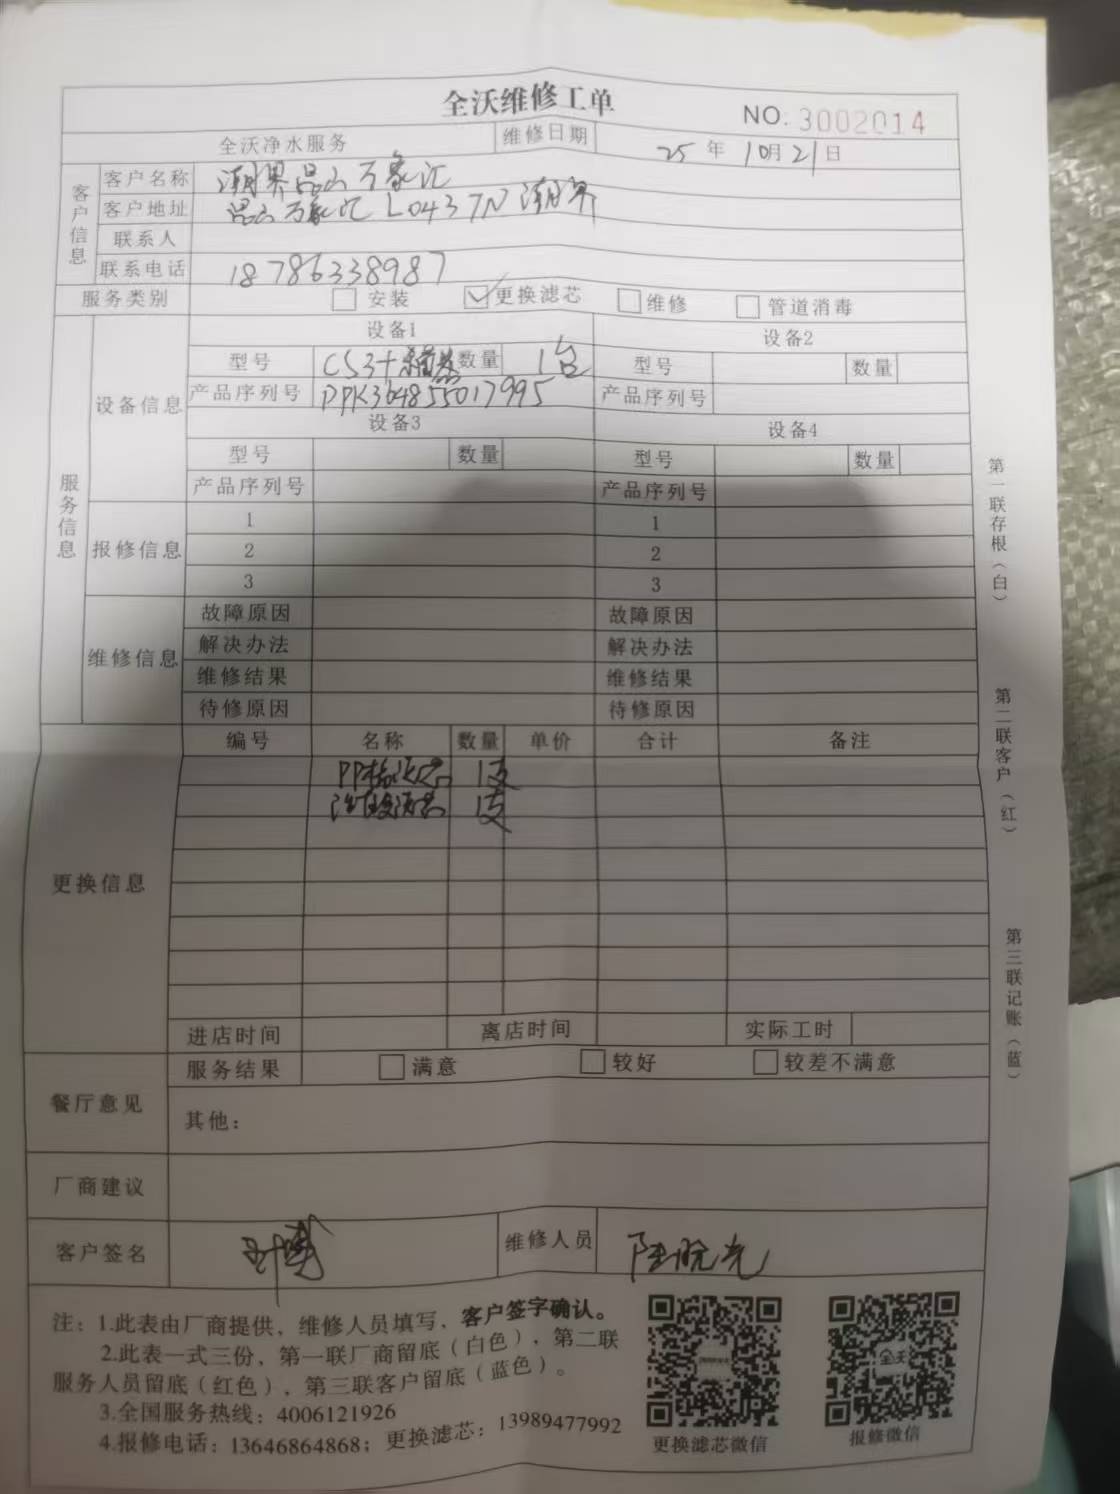 全沃维修工单
NO: 3002014
全沃净水服务 维修日期 25 年 10月 21 日
客户信息
客户名称 潮界昆山万象汇
客户地址 昆山万象汇 L0437N 潮界
联系人
联系电话 18786338987
服务类别 安装 更换滤芯 维修 管道消毒
服务信息
设备信息
设备1 设备2
型号 CS3+ 数量 1台 型号 数量
产品序列号 PPK364855017995 产品序列号
设备3 设备4
型号 数量 型号 数量
产品序列号 产品序列号
报修信息
1 1
2 2
3 3
维修信息
故障原因 故障原因
解决办法 解决办法
维修结果 维修结果
待修原因 待修原因
更换信息
编号 名称 数量 单价 合计 备注
PP棉滤芯 1支
滤芯 1支
进店时间 离店时间 实际工时
餐厅意见
服务结果 满意 较好 较差不满意
其他：
厂商建议
客户签名 维修人员 陆晓光
注：1.此表由厂商提供，维修人员填写，客户签字确认。
2.此表一式三份，第一联厂商留底（白色），第二联
服务人员留底（红色），第三联客户留底（蓝色）。
3.全国服务热线：4006121926
4.报修电话：13646864868；更换滤芯：13989477992
更换滤芯微信
报修微信
全沃
第一联存根（白）
第二联客户（红）
第三联记账（蓝）